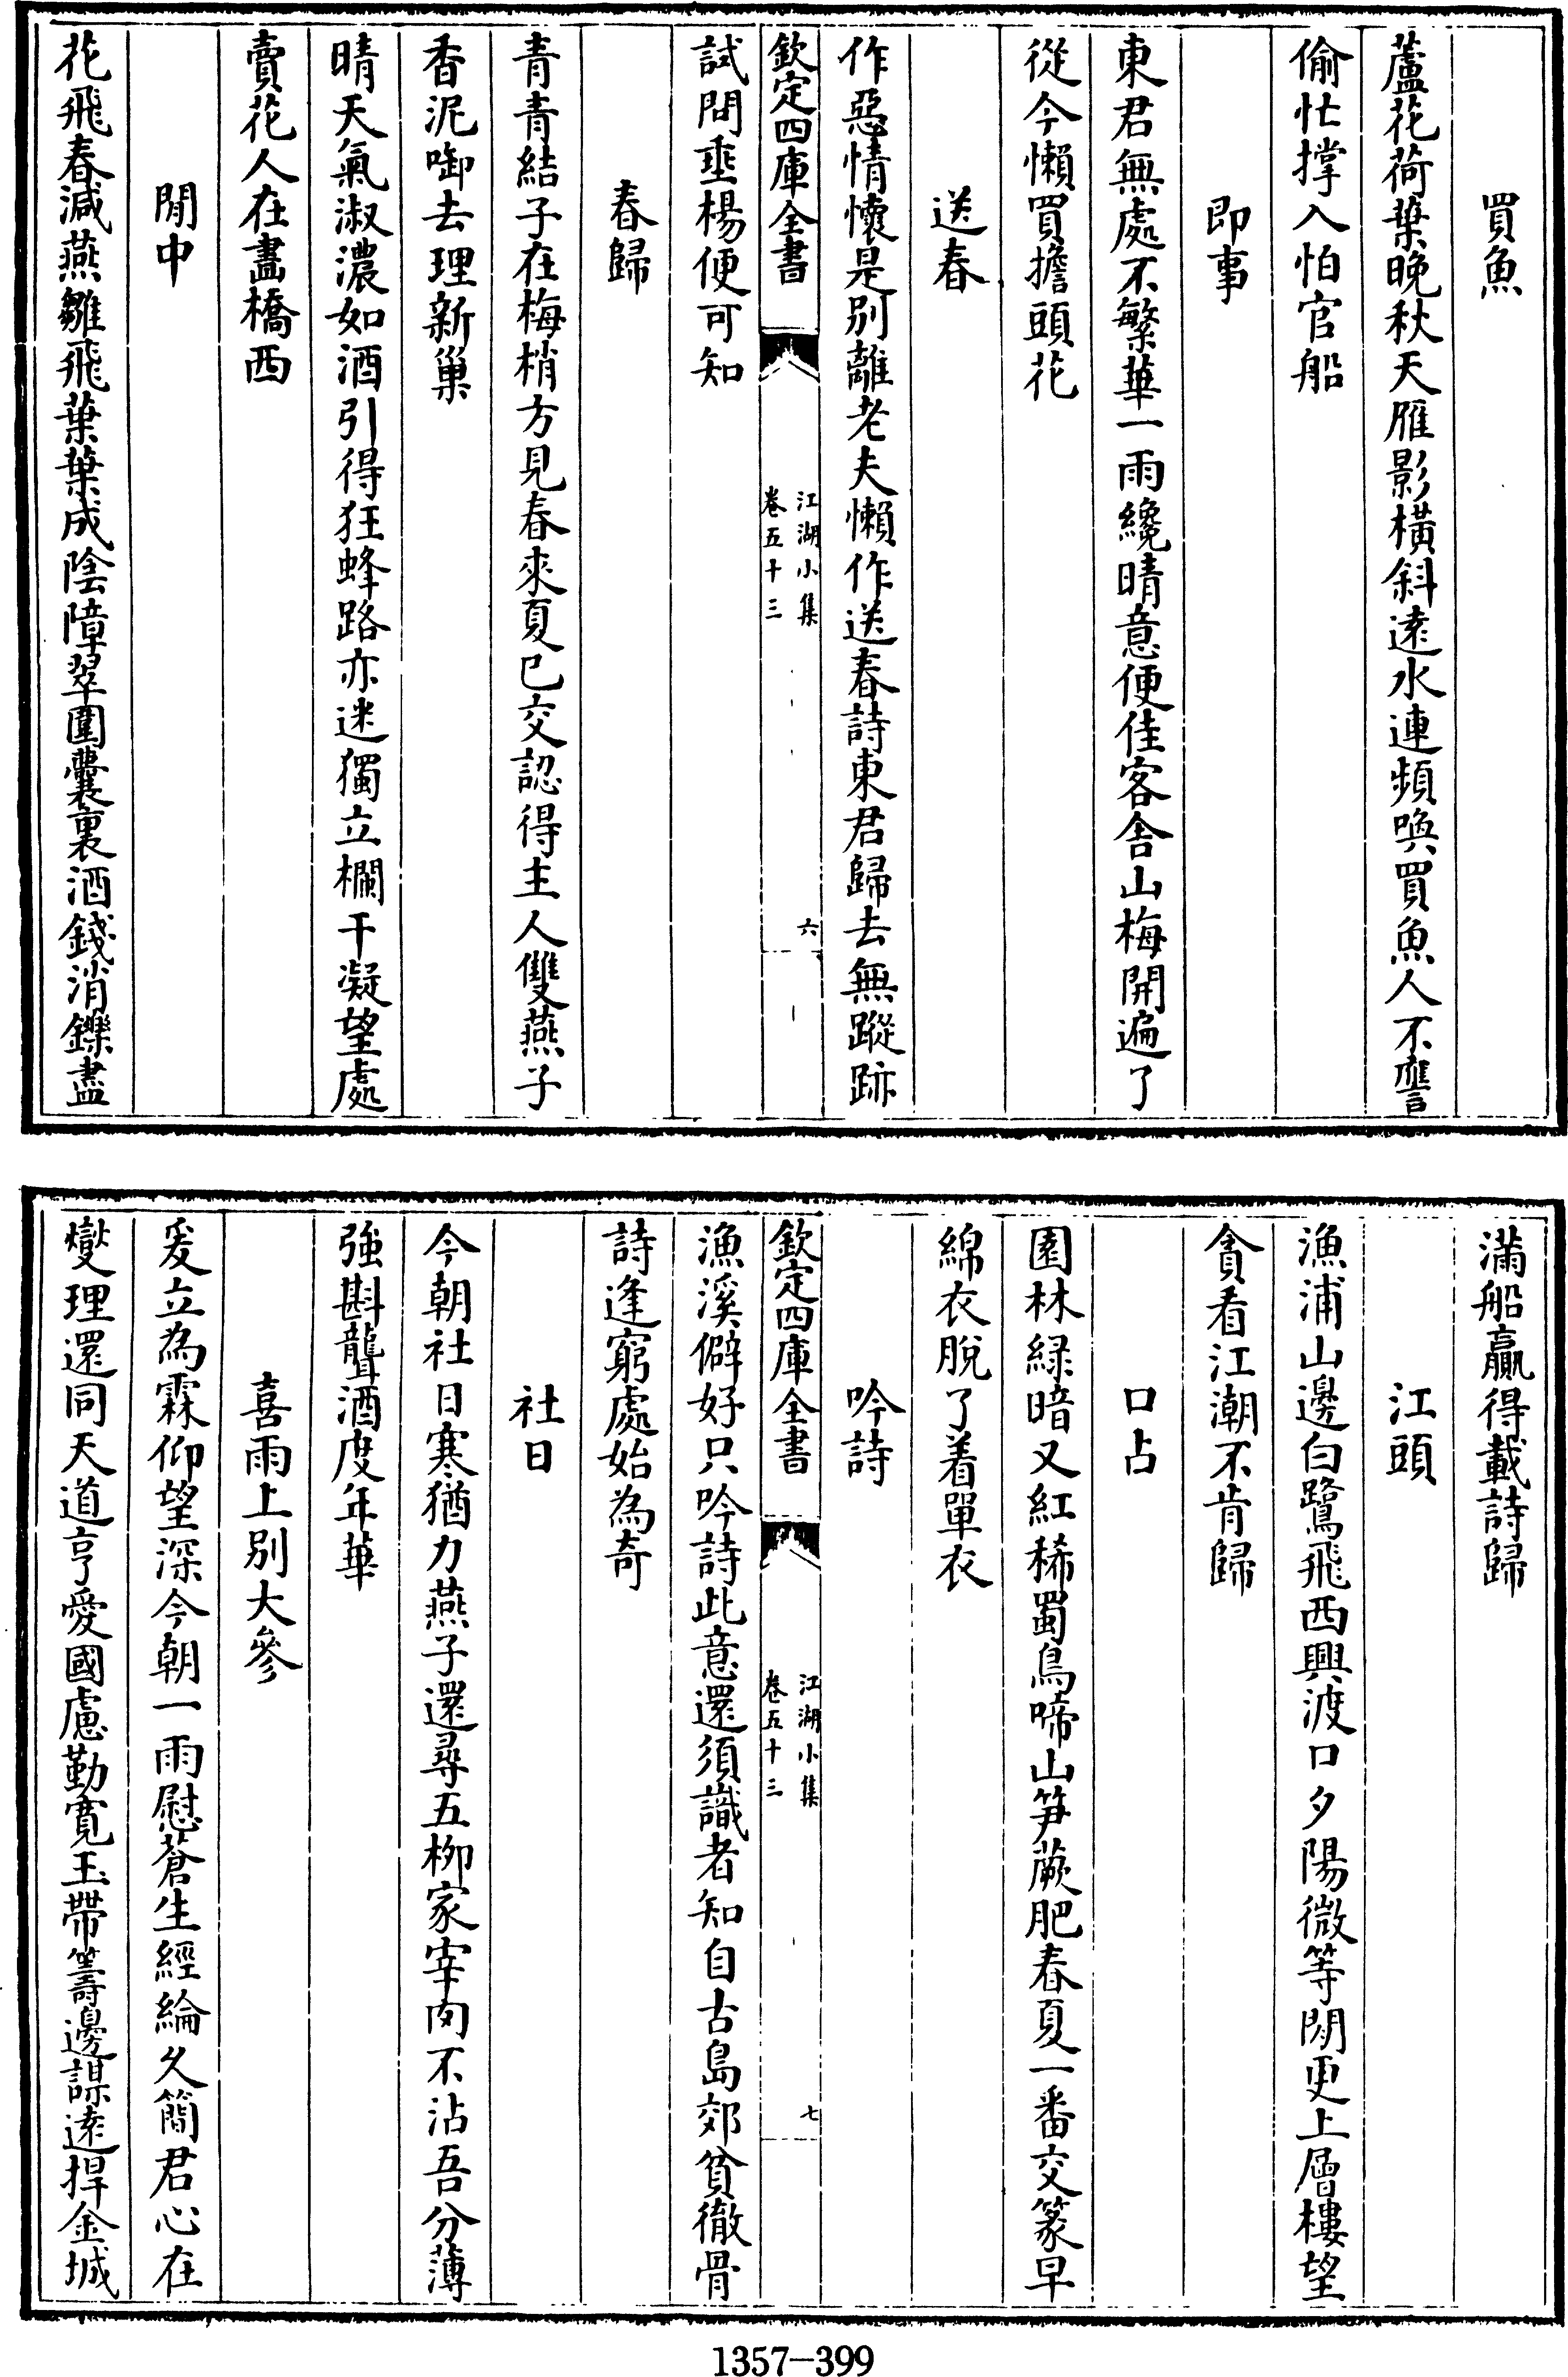 買魚
蘆花荷葉晚秋天雁影橫斜遠水連頻喚買魚人不譍
偷忙撑入怕官船
即事
東君無處不繁華一雨纔晴意便佳客舍山梅開遍了
從今懶買擔頭花
送春
作惡情懷是別離老夫懶作送春詩東君歸去無蹤跡
欽定四庫全書
江湖小集
卷五十三
六
試問垂楊便可知
春歸
青青結子在梅梢方見春來夏已交認得主人雙燕子
香泥啣去理新巢
晴天氣淑濃如酒引得狂蜂路亦迷獨立欄干凝望處
賣花人在畫橋西
閒中
花飛春減燕雛飛葉葉成陰障翠圍囊裏酒錢消鑠盡
滿船贏得載詩歸
江頭
漁浦山邊白鷺飛西興渡口夕陽微等閒更上層樓望
貪看江潮不肯歸
口占
園林緑暗又紅稀蜀鳥啼山笋蕨肥春夏一番交篆早
綿衣脫了着單衣
吟詩
欽定四庫全書
江湖小集
卷五十三
七
漁溪僻好只吟詩此意還須識者知自古島郊貧徹骨
詩逢窮處始為奇
社日
今朝社日寒猶力燕子還尋五柳家宰肉不沾吾分薄
強斟聾酒度年華
喜雨上別大參
爰立為霖仰望深今朝一雨慰蒼生經綸久簡君心在
燮理還同天道亨愛國慮勤寛玉帶籌邊謀遠捍金城
1357-399